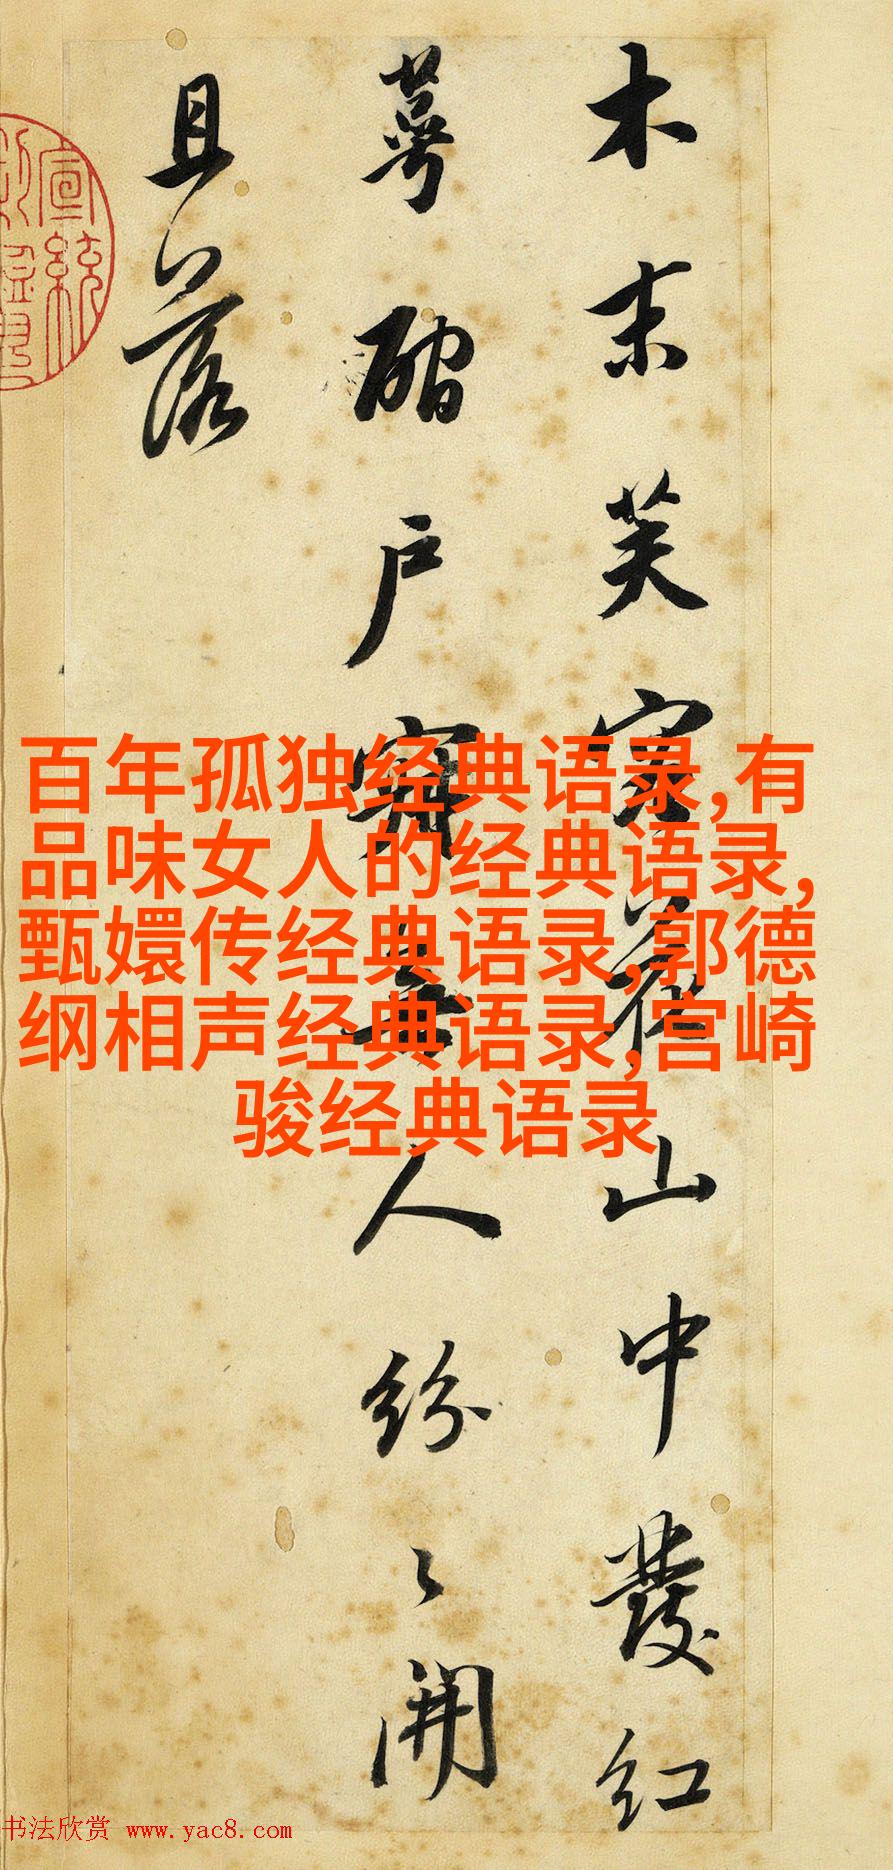 木末芙蓉花山中發紅
萼磵戶寂無人紛〻開
且落
宣統
百年孤独经典语录,有
品味女人的经典语录,
甄嬛传经典语录,郭德
纲相声经典语录,宫崎
骏经典语录
书法欣赏 www.yac8.com